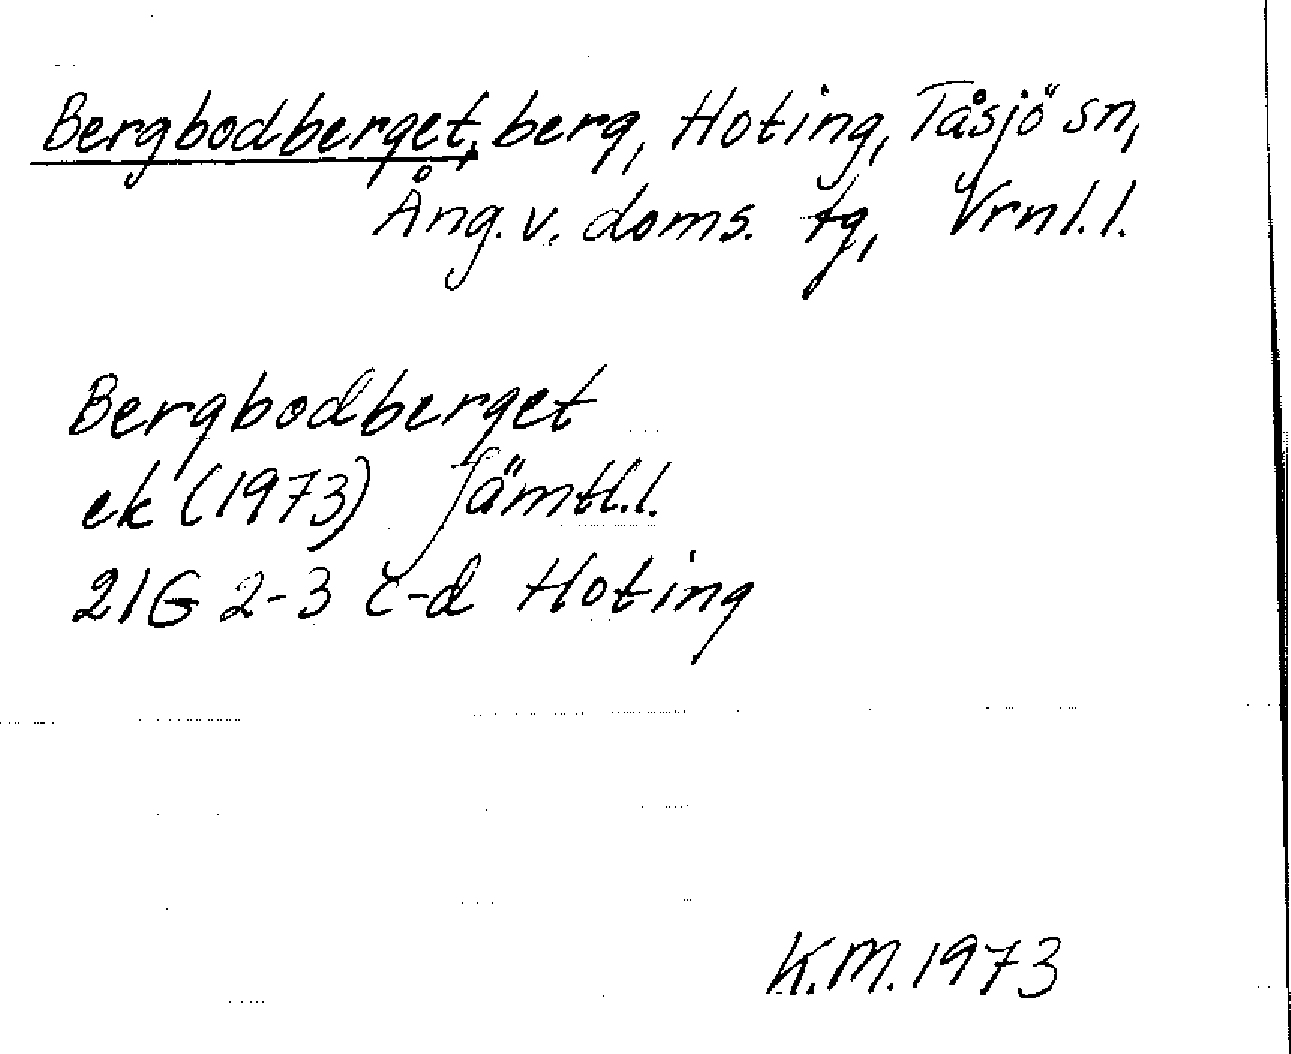 Bergbodberget, berg, Hoting, Tåsjö sn,
Ång. v. doms. tg, Vrnl. l.
Bergbodberget
ek (1973) Jämtl. l.
21G 2-3 c-d Hoting
K.M. 1973